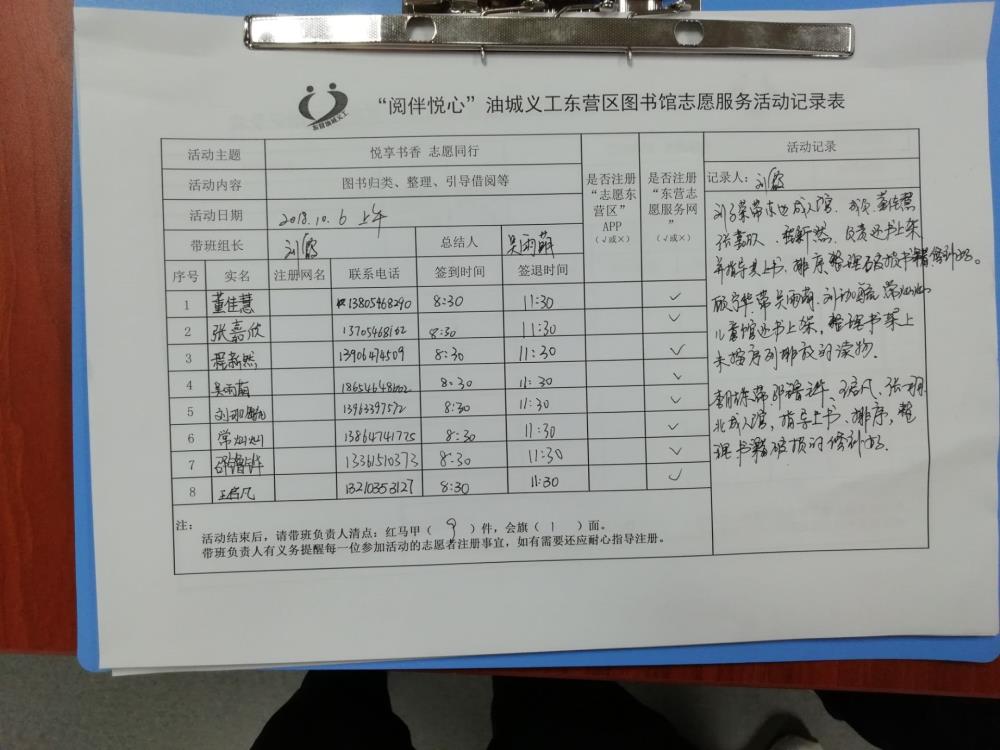 东营油城义工
“阅伴悦心”油城义工东营区图书馆志愿服务活动记录表
活动主题 悦享书香 志愿同行
活动内容 图书归类、整理、引导借阅等
活动日期 2018.10.6 上午
带班组长 刘霞 总结人 吴雨萌
序号 实名 注册网名 联系电话 签到时间 签退时间 是否注册“志愿东营区”APP（√或×） 是否注册“东营志愿服务网”（√或×）
1 董佳慧 13805468290 8:30 11:30 ✓
2 张嘉欣 13705468162 8:30 11:30 ✓
3 程新然 13906474509 8:30 11:30 ✓
4 吴雨萌 8:30 11:30 ✓
5 13963397572 8:30 11:30 ✓
6 常灿灿 13864741725 8:30 11:30 ✓
7 13361510373 8:30 11:30 ✓
8 13210353127 8:30 11:30 ✓
注：
活动结束后，请带班负责人清点：红马甲（ 9 ）件，会旗（ 1 ）面。
带班负责人有义务提醒每一位参加活动的志愿者注册事宜，如有需要还应耐心指导注册。
活动记录
记录人：刘霞
带东边成人馆、董佳慧
张嘉欣、程新然、负责还书上架
并指导上书、排序、整理破损书籍修补好。
带吴雨萌、常灿灿
儿童馆还书上架，整理书架上
未按序列排放的读物。
北成人馆，指导上书、排序，整
理书籍破损的修补好。